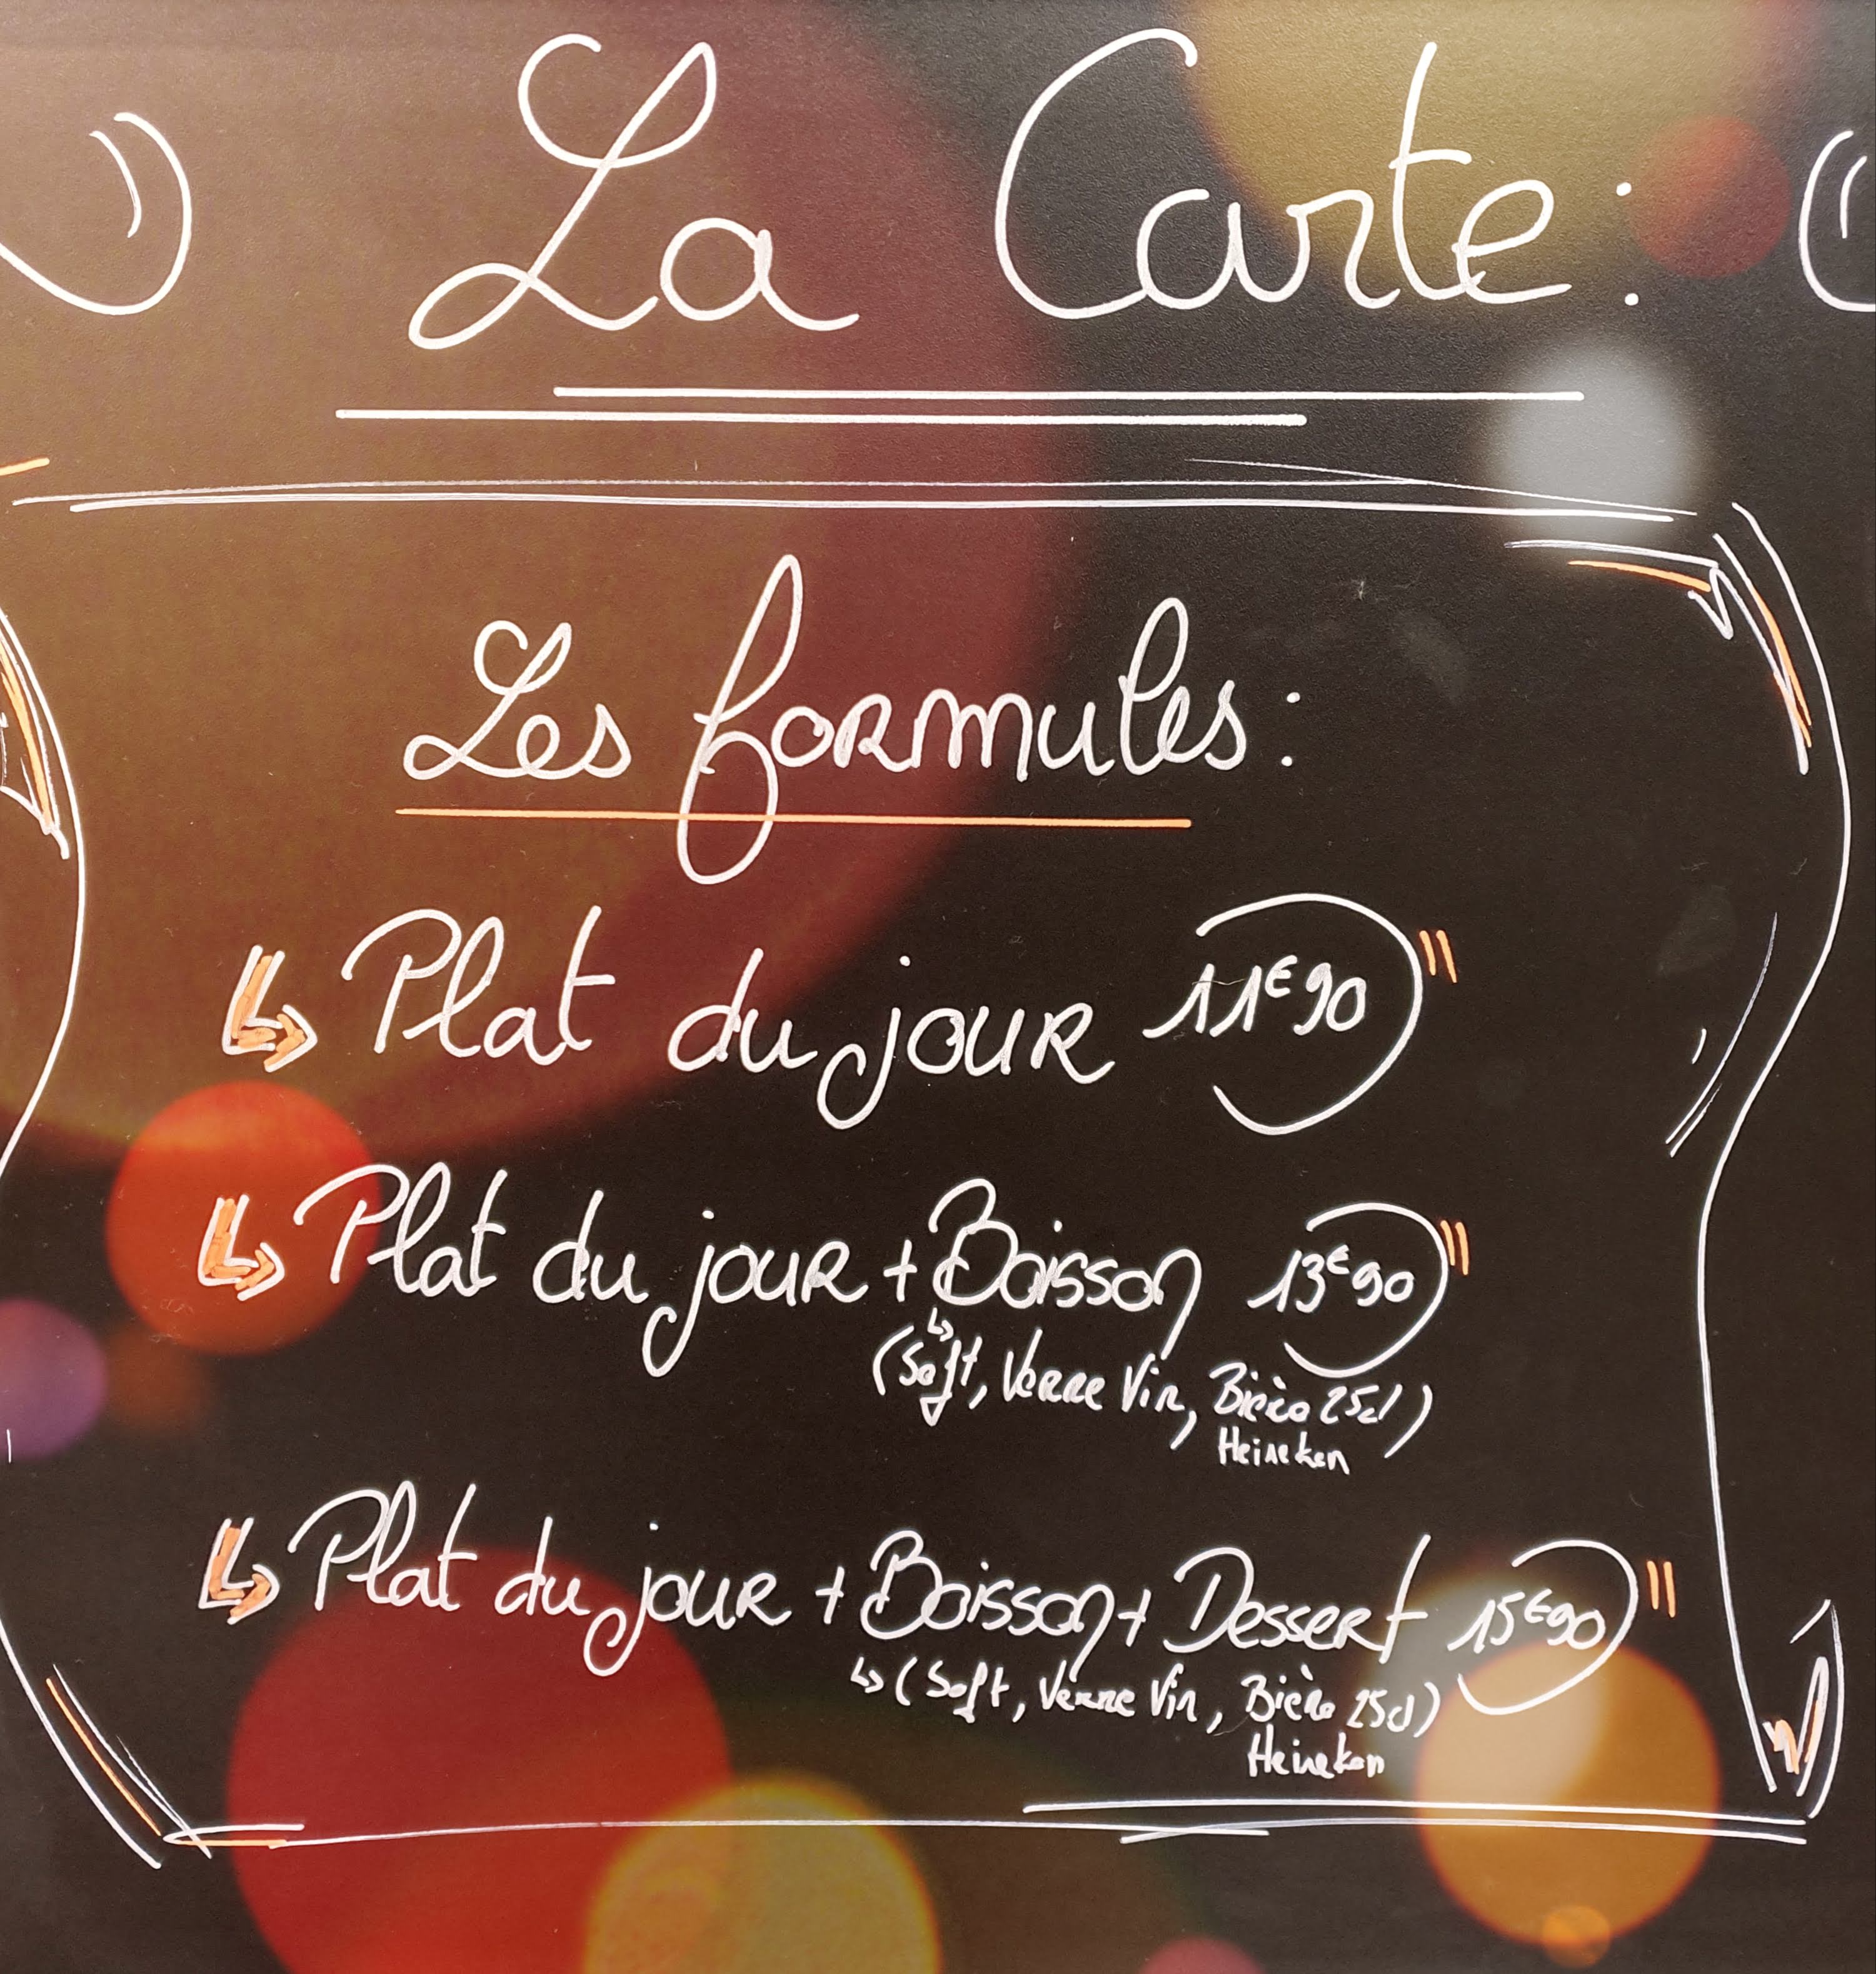 La Carte :
Les formules :
Plat du jour 11€90
Plat du jour + Boisson 13€90
(Soft, Verre Vin, Bière 25cl)
Heineken
Plat du jour + Boisson + Dessert 15€90
(Soft, Verre Vin, Bière 25cl)
Heineken